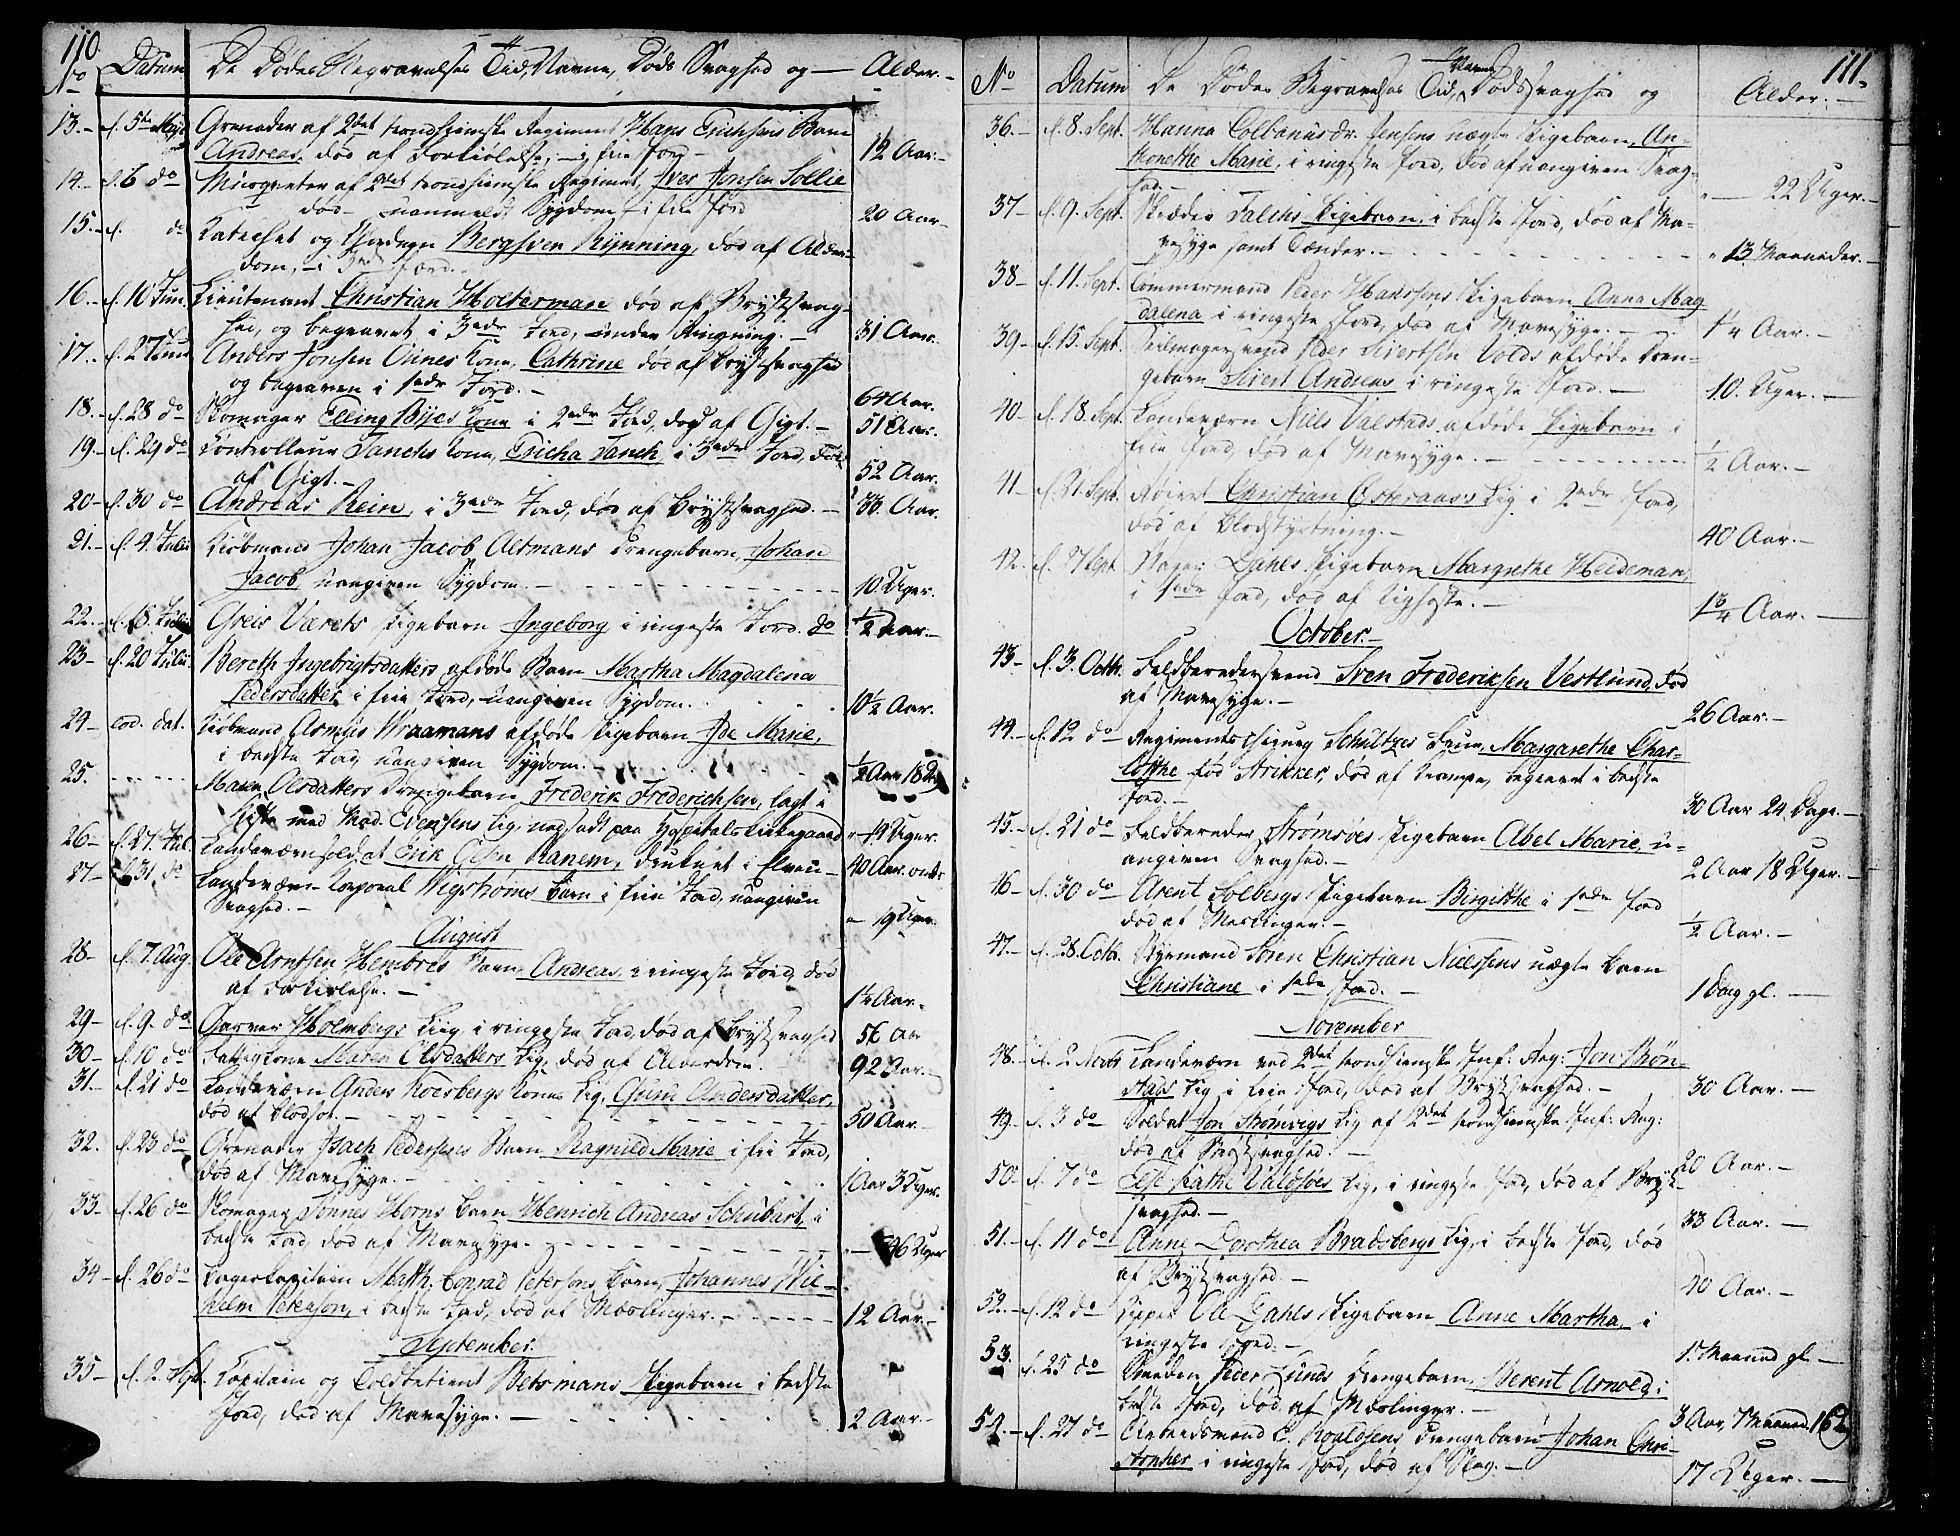 110.
No Datum De Dødes Begravelses Tid, Navne, Døds Svaghed og — Alder. —
13. — d. 5te Grenader af 2det trondhiemske Regiment Hans Erichsens Barn
Andreas, død af Forkiølelse, — i frie Jord — 1½ Aar. —
14. — d. 6 do Musqueteer af 2det trondhiemske Regiment, Iver Jonsen Sollie
død — uanmeldt Sygdom — i frie Jord 20 Aar —
15. — d. do Catechet og Bergsven Rÿnning, død af Alder-
dom, — i 3die Jord. —
16. — d. 10 Jun. Lieutenant Christian Holterman død af Brystsvag-
hed, og begravet i 3die Jord, uden Ringning. — 31 Aar.
17. — d. 27 Juni Anders Jonsen Kone, Cathrine død af Brystsvaghed
og begraven i 1ste Jord. — 64 Aar.
18. — d. 28 do Skomager Elling Byes Kone i 2den Jord, død af Gigt. — 51 Aar.
19. — d. 29 do Controlleur Tanchs Kone, Ericha Tanch i 3die Jord, død
af Gigt. — 52 Aar.
20 — d. 30 do Andreas Rein, i 3die Jord, død af Brystsvaghed. — 33 Aar.
21. — d. 4. Juli Kiøbmand Johan Jacob Altmans Drengebarn, Johan
Jacob, uangiven Sygdom. — 10 Uger.
22. — d. 18. Juli Greis Værets Pigebarn Ingeborg i ringeste Jord. do ½ Aar. —
23 — d. 20 Juli Bereth Ingebrigtsdatters afdøde Barn Martha Magdalena
Pedersdatter i frie Jord, uangiven Sygdom. 10½ Aar.
24 — eod. dat. Kiøbmand Asmus Wraamans afdøde Pigebarn Ide Marie,
i bedste Jord uangiven Sygdom. — ½ Aar 18 2
25. Maren Olsdatters Drengebarn Frederik Frederichsen, lagt i
Kiste med Mad. Evensens Lig, nedsadt paa Hospitalskirkegaard 19 Uger.
26 — d. 27. Jul. Landeværnsoldat Erik Olsen Ranem, druknet i Elven — 40 Aar.
27 — d. 31 do Landeværn Korporal Nygstrøms Barn i frie Jord, uangiven
Svaghed. — 19 Uger.
August
28 — d. 7. Aug. Ole Arntsen Hembres Barn Andreas, i ringeste Jord, død
af Forkiølelse. — 1¼ Aar —
29 — d. 9. do Garver Holmbergs Lig, i ringeste Jord, død af Brystsvaghed 56 Aar
30 — d. 10 do Fattigkone Maren Olsdatters Lig, død af Alderdom. 92 Aar. —
31. — d. 21 do Landeværn Anders Roesbergs Kones Lig, Guru Andersdatter,
død af Blodsot. — 50 Aar. —
32. d. 23 do Grenader Isach Pedersens Barn Ragnild Marie i fri Jord,
død af Mavesyge. — 1 Aar 3 Uger.
33 — d. 26 do Skomager Tonnes Horns Barn Henrich Andreas Schubart, i
bedste Jord død af Mavesyge. — 26 Uger
34 — d. 26 do Borgerkapitain Math. Conrad Petersens Barn, Johannes Wil-
helm Petersen, i bedste Jord, død af Mæslinger. — 12 Aar. —
September.
35 — d. 2. Sept. Kapitain og Toldbetient Betsmans Pigebarn i bedste
Jord, død af Mavesyge. — 2 Aar —
111.
No Datum De Dødes Begravelses Tid, Navne, Dødssvaghed og Alder. —
36. — d. 8. Sept. Hanna Colbanusdr. Jensens uægte Pigebarn, An-
thonethe Marie, i ringeste Jord, død af uangiven Svag-
hed. — 22 Uger. —
37 — d. 9. Sept. Skrædder Falchs Pigebarn, i bedste Jord, død af Ma-
vesyge samt Tænder. — 13 Maaneder. —
38 — d. 11. Sept. Tømmermand Peder Hanssens Pigebarn Anna Mag
dalena i ringeste Jord, død af Mavesyge. — 1¼ Aar. —
39 — d. 15. Sept. Seilmagersvend Peder Siversen Volds afdøde Dren-
gebarn Sivert Andreas i ringeste Jord. — 10. Uger. —
40 — d. 18. Sept. Landeværn Niels Valstads afdøde Pigebarn i
frie Jord, død af Mavesyge. — ½ Aar. —
41 — d. 21. Sept. Christian Østeraas's Lig i 2den Jord,
død af Blodstyrtning. — 40 Aar. —
42. — d. 27 Sept. Major Dahls Pigebarn Margrethe Heideman,
i 1ste Jord, død af Kighoste. — 1¾ Aar. —
October. —
43 — d. 3. Octb. Feldberedersvend Sven Frederiksen Vestlund, død
af Mavesyge. — 26 Aar. —
44. — d. 12 do Regimentschirurg Schultzes Frue, Margarethe Char-
lotthe fød Strikker, død af Krampe, begravet i bedste
Jord. — 30 Aar 24 Dage. —
45. — d. 21 do Feldbereder Strømsøes Pigebarn Abel Marie, u-
angiven Svaghed. — 2 Aar 18 Uger. —
46 — d. 30 do Arent Solbergs Pigebarn Birgitthe i 1ste Jord
død af Mæslinger. — ½ Aar. —
47. — d. 28. Octb. Styrmand Søren Christian Nielssens uægte Barn
Christiane i 1ste Jord. — 1 Dag gl. —
November
48. — d. 2 Novb. Landeværn ved 2det trondhiemske Inf: Reg: Jon Brøn-
stads Lig, i frie Jord, død af Brystsvaghed. — 30 Aar. —
49 — d. 3 do Soldat Jon Strømvigs Lig af 2det trondhiemske Inf: Reg:
død af Brystsvaghed. — 20 Aar. —
50 — d. 7 do Else Kathr. Valdsøes Lig, i ringeste Jord, død af Bryst-
svaghed. — 33 Aar. —
51. — d. 11 do Anne Dorthea Bradsbergs Lig, i bedste Jord, død
af Brystsvaghed. — 40 Aar. —
52. — d. 12 do Ole Dahls Pigebarn Anne Martha, i
ringeste Jord. — 1. Maaned gl. —
53. — d. 25 do Smeden Peder Lunds Drengebarn, Berent Arnold i
bedste Jord, død af Mæslinger. — 3 Aar, 7 Maaned. 162
54. — d. 27 do Arbeidsmand E. Roaldsens Drengebarn Johan Chri-
stopher i ringeste Jord, død af Slag. — 17 Uger. —